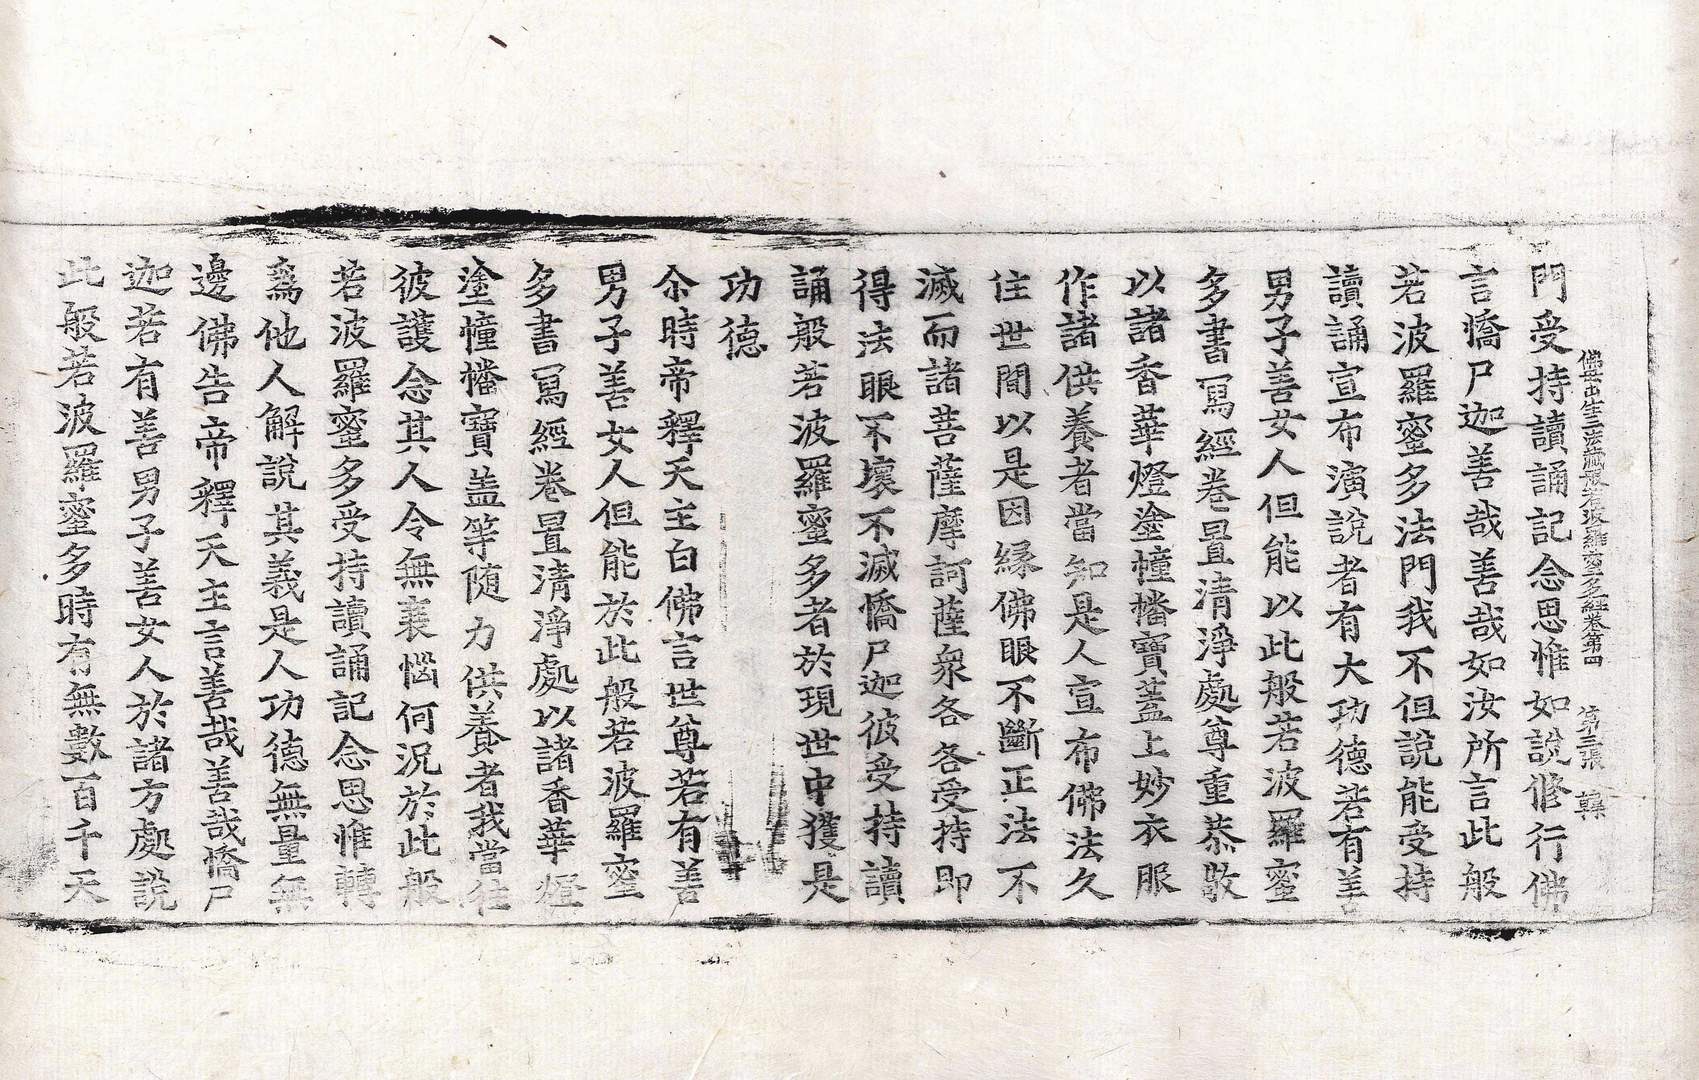 佛母出生三法藏般若波羅蜜多經卷第四 第三張 韓
門受持讀誦記念思惟如說修行佛
言憍尸迦善哉善哉如汝所言此般
若波羅蜜多法門我不但說能受持
讀誦宣布演說者有大功德若有善
男子善女人但能以此般若波羅蜜
多書寫經卷置清淨處尊重恭敬
以諸香華燈塗幢幡寶蓋上妙衣服
作諸供養者當知是人宣布佛法久
住世間以是因緣佛眼不斷正法不
滅而諸菩薩摩訶薩衆各各受持即
得法眼不壞不滅憍尸迦彼受持讀
誦般若波羅蜜多者於現世中獲是
功德
尒時帝釋天主白佛言世尊若有善
男子善女人但能於此般若波羅蜜
多書寫經卷置清淨處以諸香華燈
塗幢幡寶盖等随力供養者我當往
彼護念其人令無衰惱何況於此般
若波羅蜜多受持讀誦記念思惟轉
爲他人解說其義是人功德無量無
邊佛告帝釋天主言善哉善哉憍尸
迦若有善男子善女人於諸方處說
此般若波羅蜜多時有無數百千天